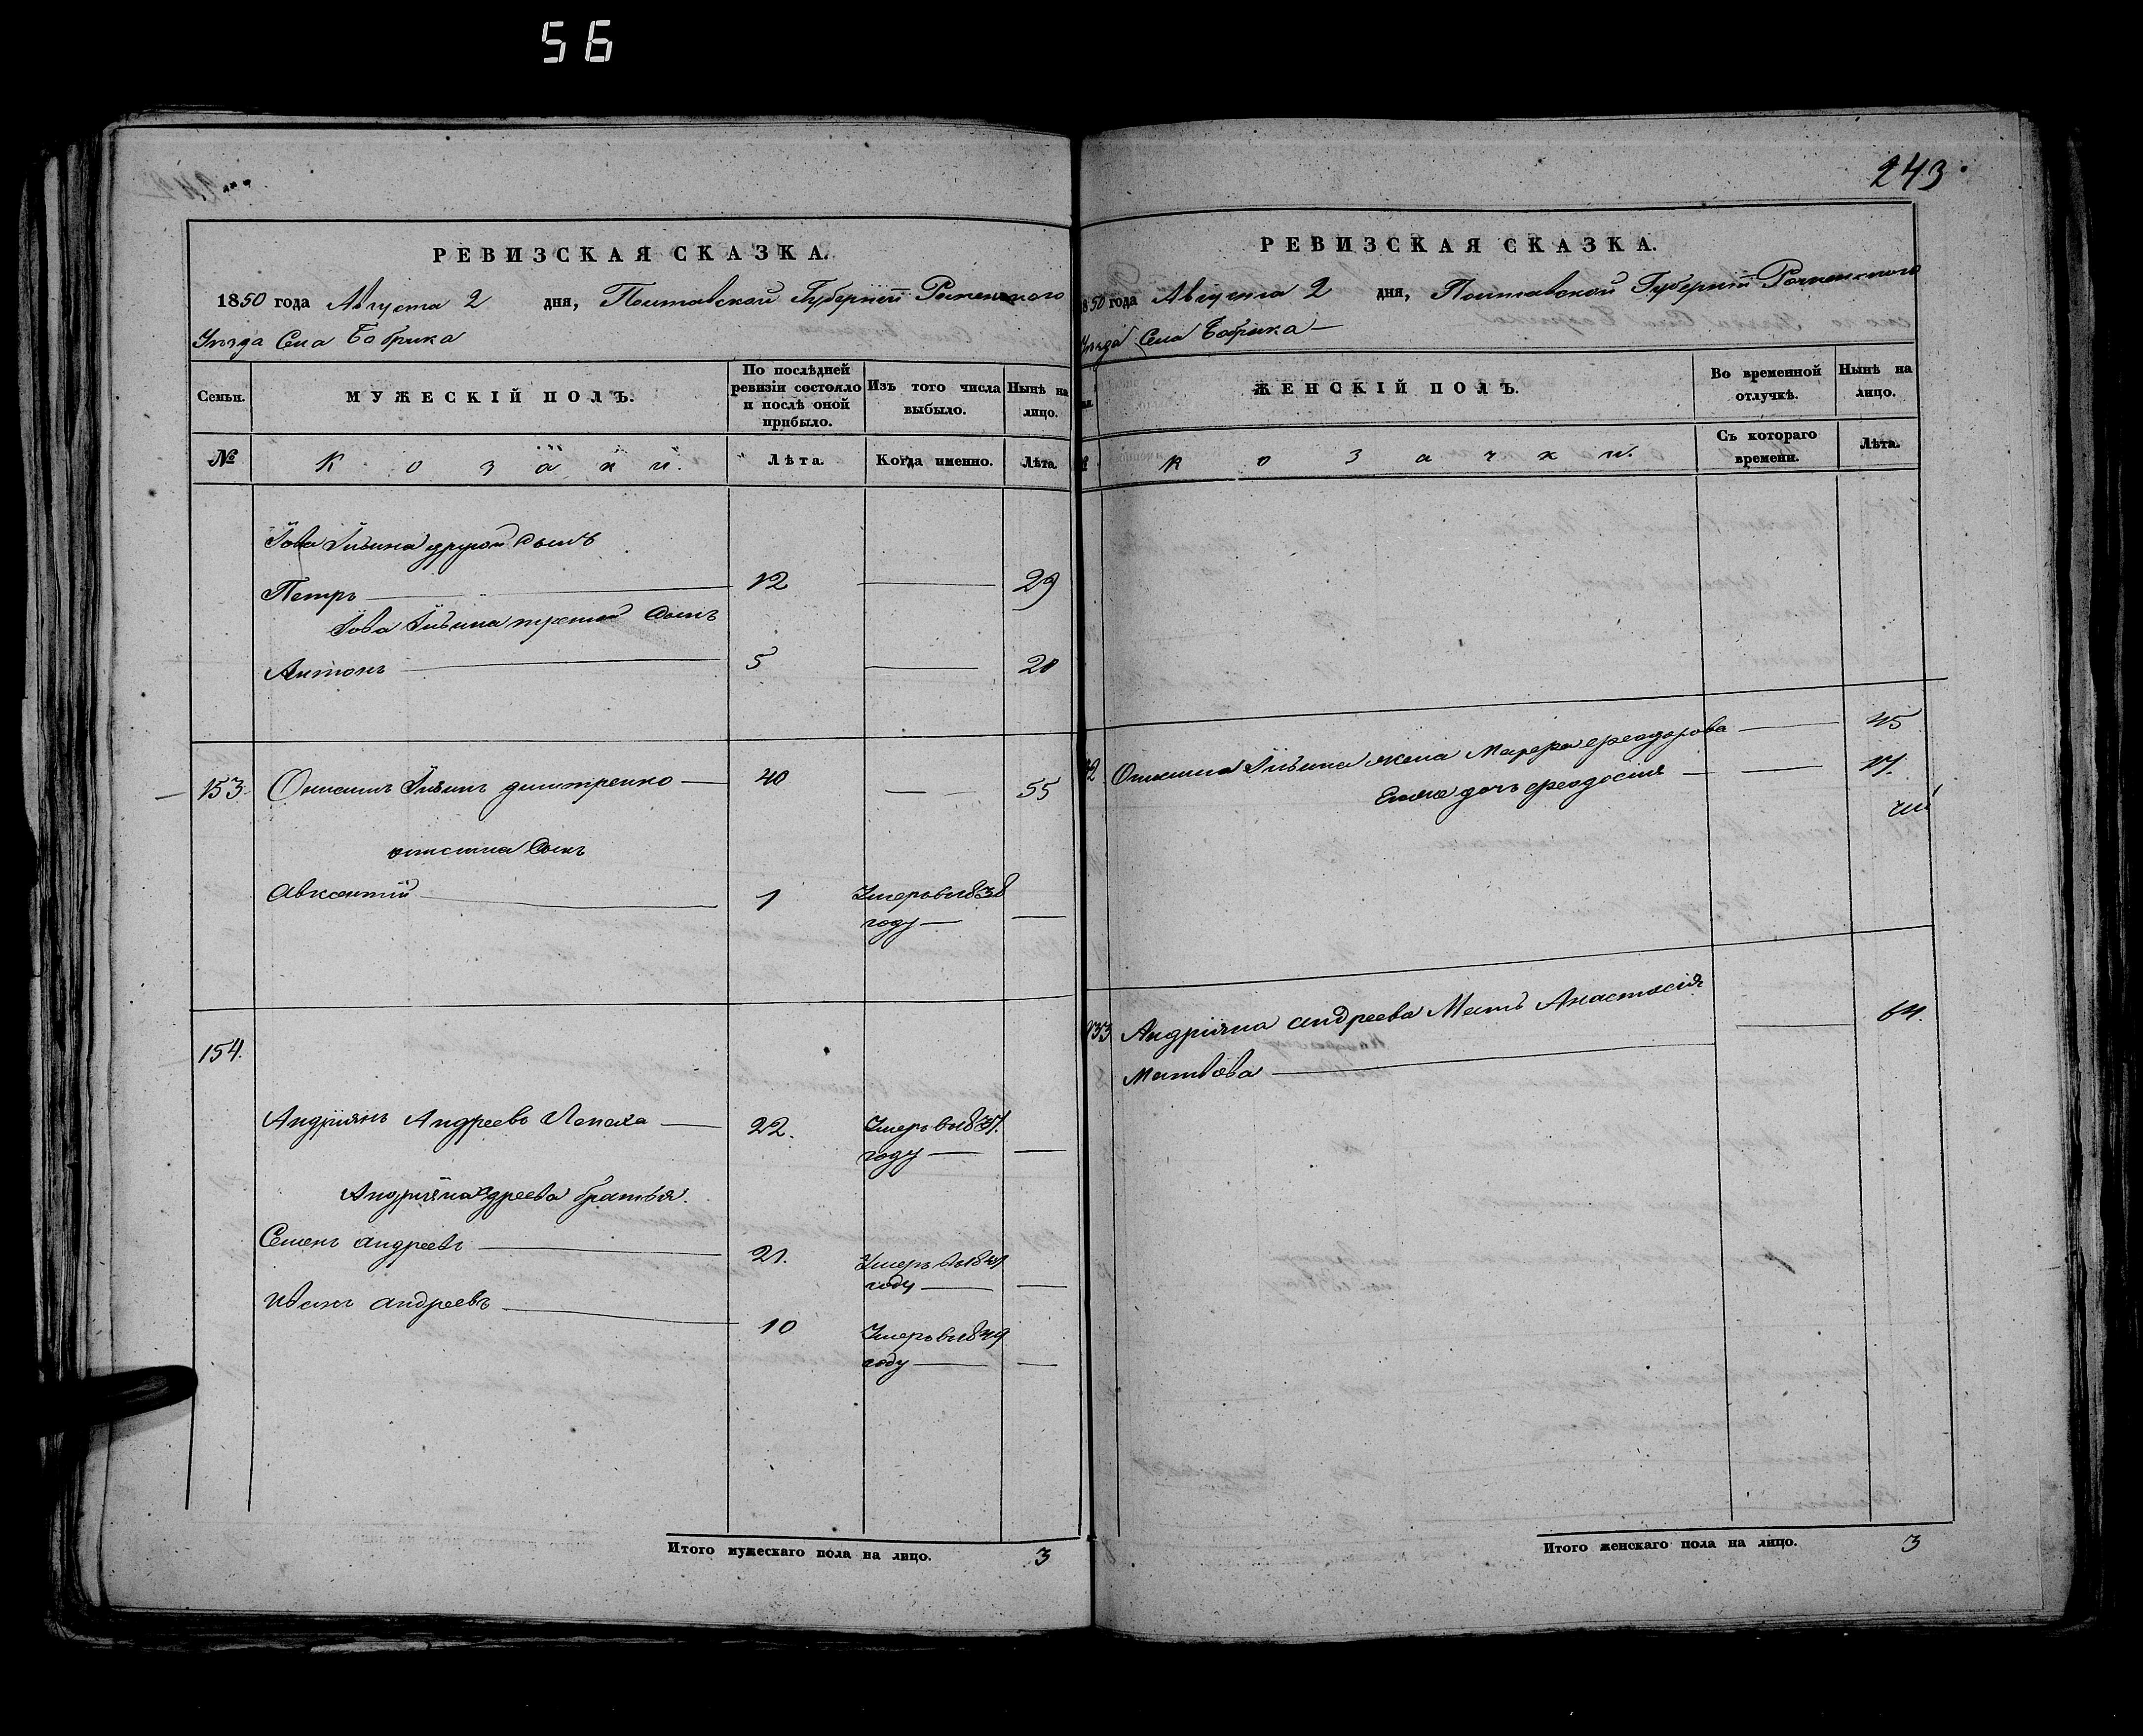 56
РЕВИЗСКАЯ СКАЗКА.
1850 года Августа 2 дня, Полтавской Губернїи Роменского
Уѣзда Села Бобрика
Семьи.
МУЖЕСКІЙ ПОЛЪ.
По послѣдней ревизіи состояло и послѣ оной прибыло.
Изъ того числа выбыло.
Нынѣ на лицо.
№
Козаки.
Лѣта.
Когда именно.
Лѣта.
Іова Ильина другой Сынъ
Петръ 12 29
Іова Ильина третий Сынъ
Антонъ 5 20
153 Онисимъ Ильинъ дмитренко 40 55
онисима Сынъ
Авксентий 1 Умеръ въ 1838
году
154.
Андриянъ Андреевъ Лепеха 22. Умеръ въ 1837.
году
Андрияна Андреева братья.
Семенъ андреевъ 21. Умеръ въ
году
Иванъ андреевъ 10 Умеръ въ 1849
году
Итого мужескаго пола на лицо. 3
243
РЕВИЗСКАЯ СКАЗКА.
1850 года Августа 2 дня, Полтавской Губернїи Роменского
Уѣзда Села Бобрика
ЖЕНСКІЙ ПОЛЪ.
Во временной отлучкѣ.
Нынѣ на лицо.
Козачки.
Съ котораго времени.
Лѣта.
Онисима Ильина жена Марфа феодорова 45
Єгоже дочь феодосия 17.
Андрияна андреева Мать Анастасія 64.
Матвѣева
Итого женскаго пола на лицо. 3